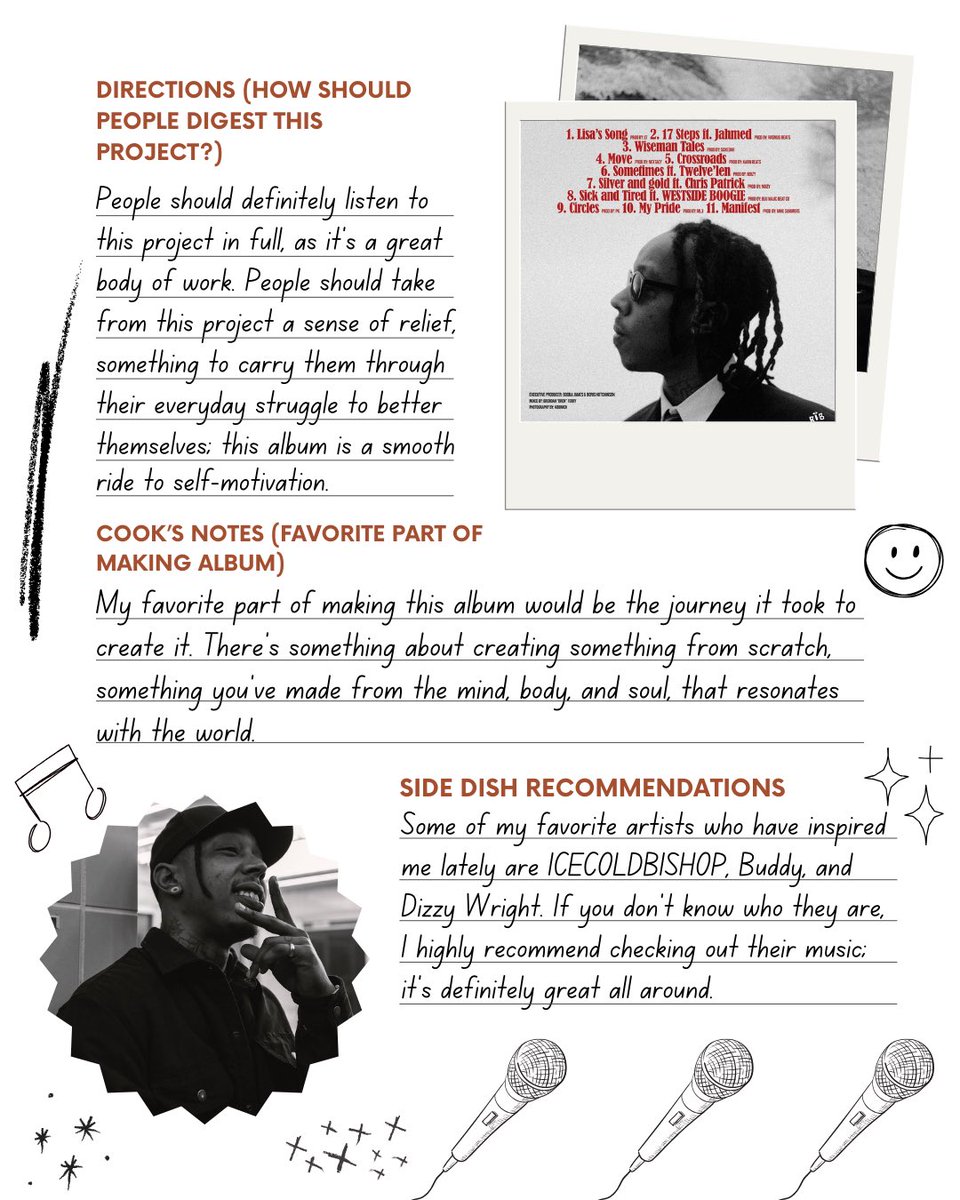 DIRECTIONS (HOW SHOULD
PEOPLE DIGEST THIS
PROJECT?)
People should definitely listen to
this project in full, as it's a great
body of work. People should take
from this project a sense of relief,
something to carry them through
their everyday struggle to better
themselves; this album is a smooth
ride to self-motivation.
1. Lisa's Song 2. 17 Steps ft. Jahmed
3. Wiseman Tales
4. Move 5. Crossroads
6. Sometimes ft. Twelve'len
7. Silver and gold ft. Chris Patrick
8. Sick and Tired ft. WESTSIDE BOOGIE
9. Circles 10. My Pride 11. Manifest
COOK'S NOTES (FAVORITE PART OF
MAKING ALBUM)
My favorite part of making this album would be the journey it took to
create it. There's something about creating something from scratch,
something you've made from the mind, body, and soul, that resonates
with the world.
SIDE DISH RECOMMENDATIONS
Some of my favorite artists who have inspired
me lately are ICECOLDBISHOP, Buddy, and
Dizzy Wright. If you don't know who they are,
I highly recommend checking out their music;
it's definitely great all around.